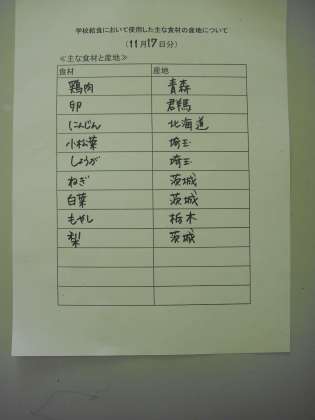 学校給食において使用した主な食材の産地について
（11月17日分）
≪主な食材と産地≫
食材 産地
鶏肉 青森
卵 群馬
にんじん 北海道
小松菜 埼玉
しょうが 埼玉
ねぎ 茨城
白菜 茨城
もやし 栃木
梨 茨城